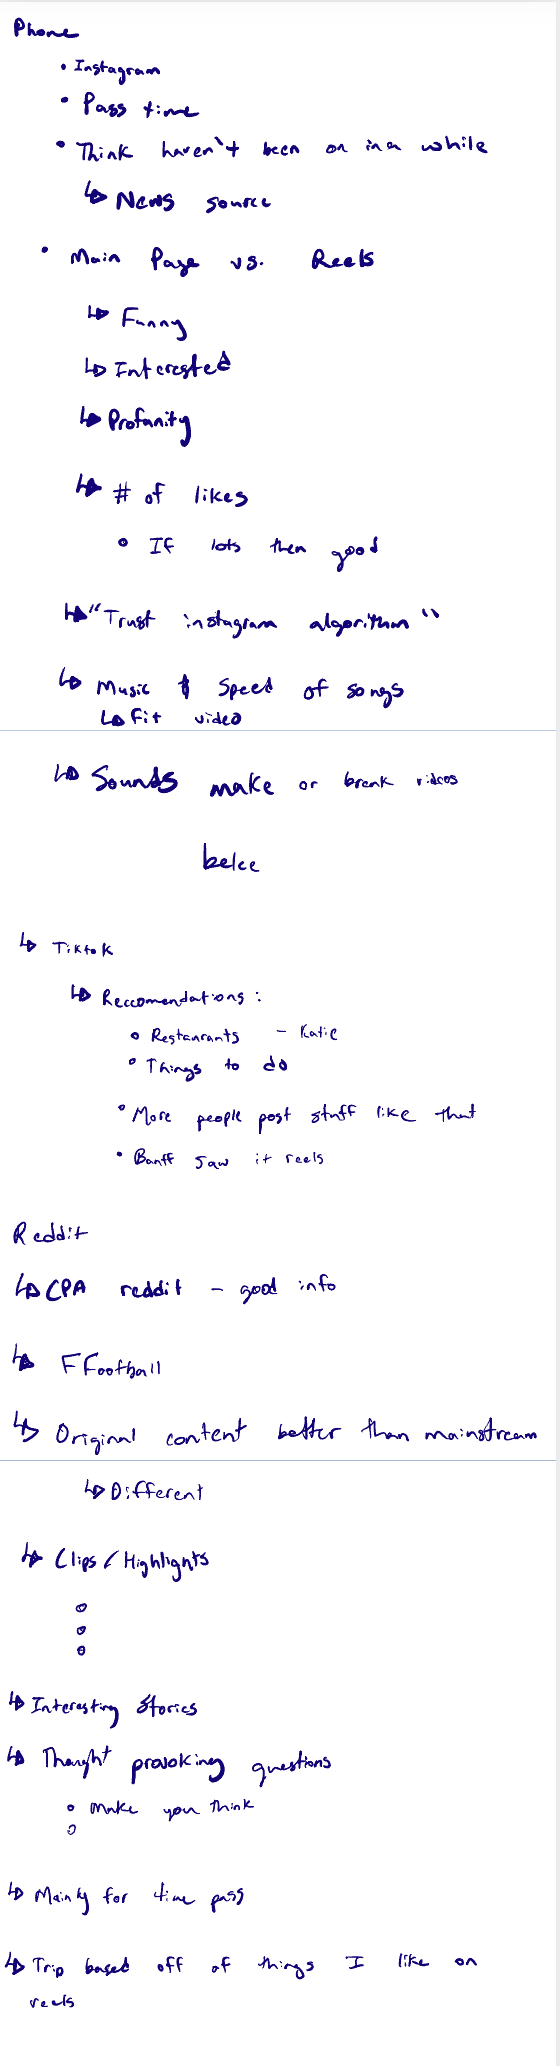 Phone
• Instagram
• Pass time
• Think haven't been on in a while
↳ News source
• Main Page vs. Reels
↳ Funny
↳ Interested
↳ Profanity
↳ # of likes
◦ If lots then good
↳ "Trust instagram algorithm"
↳ Music & Speed of songs
↳ Fit video
↳ Sounds make or break videos
belee
↳ Tiktok
↳ Reccomendations:
◦ Restaurants - Katie
◦ Things to do
◦ More people post stuff like that
• Banff saw it reels
Reddit
↳ CPA reddit - good info
↳ FFootball
↳ Original content better than mainstream
↳ Different
↳ Clips / Highlights
↳ Interesting Stories
↳ Thought provoking questions
◦ Make you think
↳ Mainly for time pass
↳ Trip based off of things I like on
reels